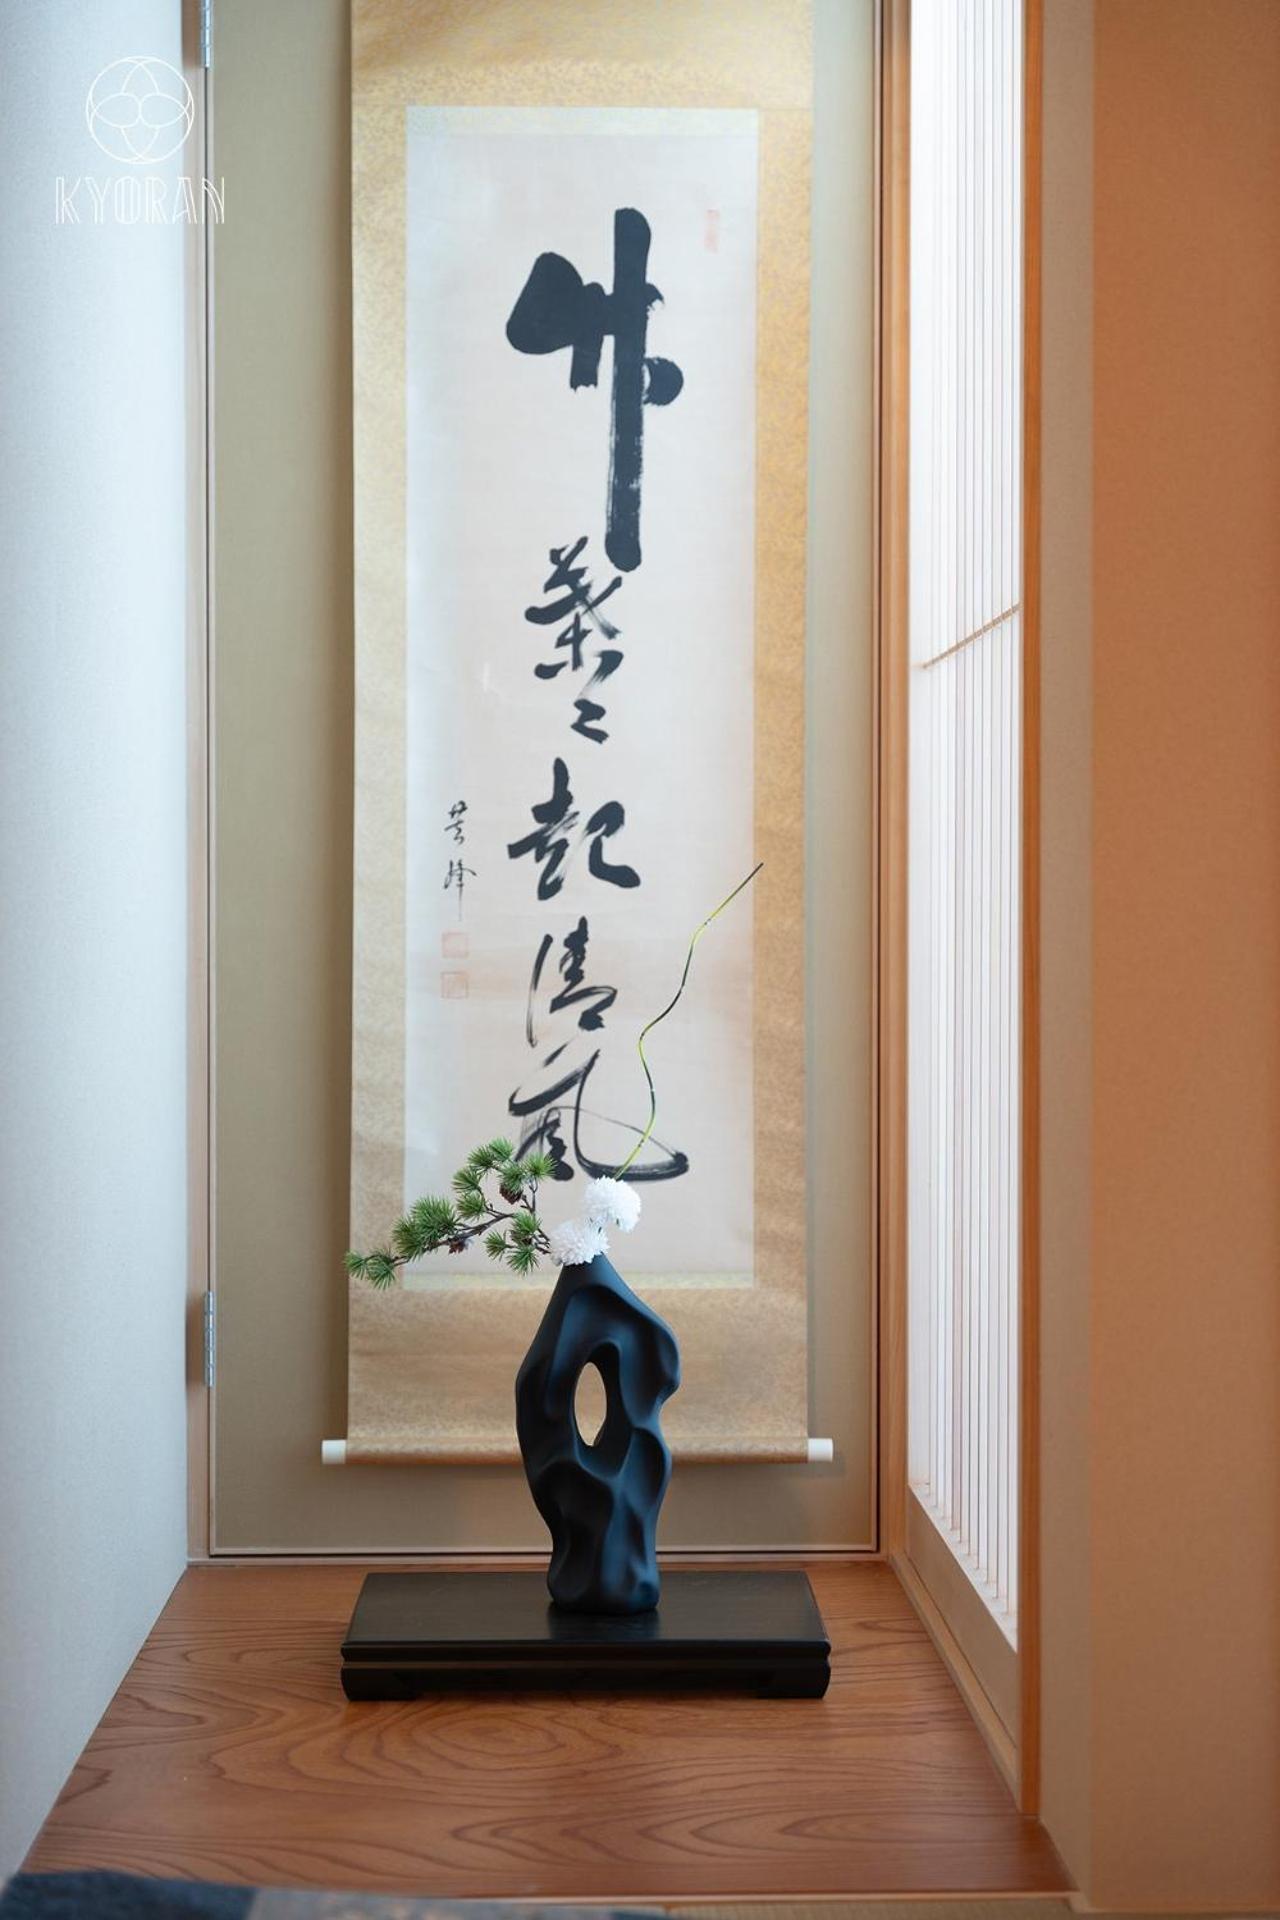 KYORAN
竹葉々起清風